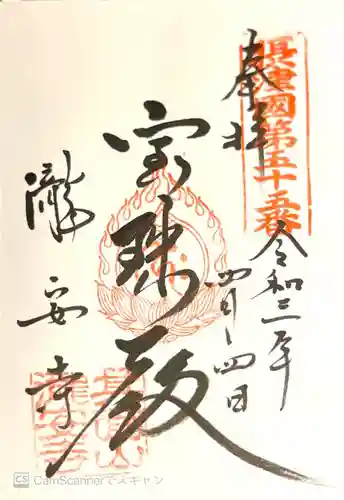 摂津国第五十五番
奉拝
令和三年
四月四日
宝珠殿
瀧安寺
CS CamScannerでスキャン